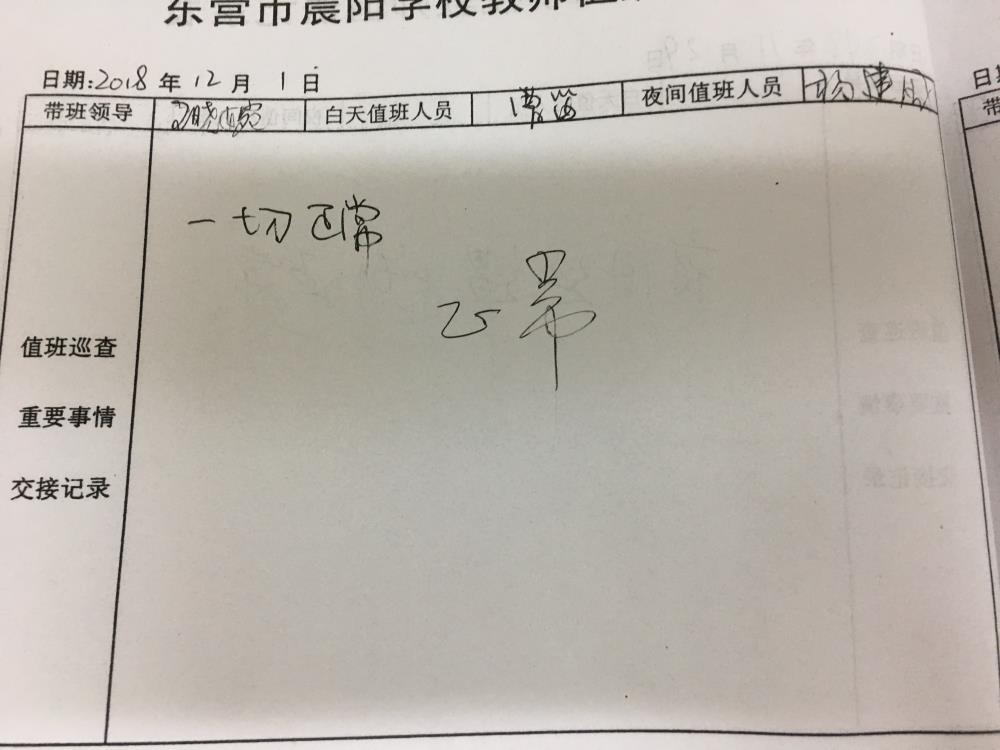 东营市晨阳学校教师值
日期:2018年12月1日
带班领导 白天值班人员 夜间值班人员
一切正常
正常
值班巡查
重要事情
交接记录